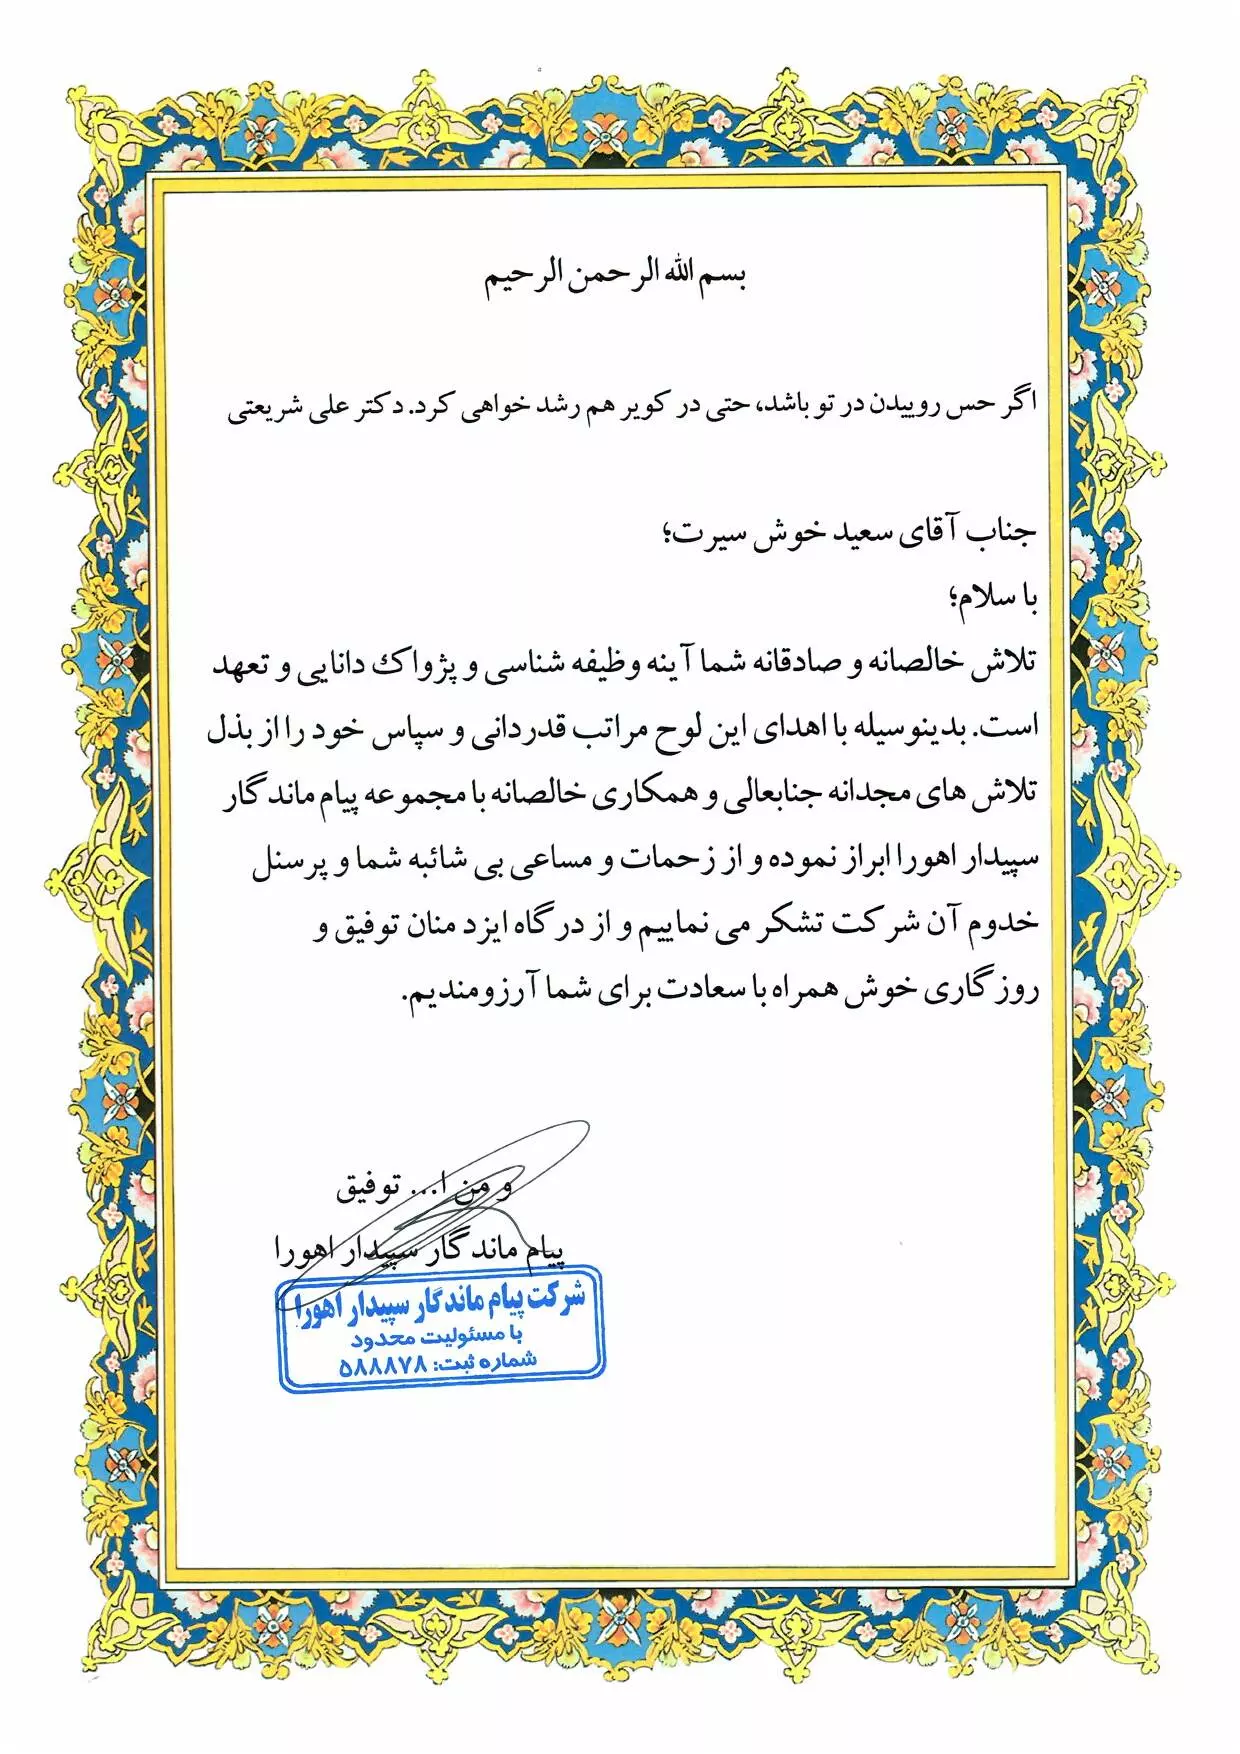 بسم الله الرحمن الرحیم
اگر حس روییدن در تو باشد، حتی در کویر هم رشد خواهی کرد. دکتر علی شریعتی
جناب آقای سعید خوش سیرت؛
با سلام؛
تلاش خالصانه و صادقانه شما آینه وظیفه شناسی و پژواک دانایی و تعهد
است. بدینوسیله با اهدای این لوح مراتب قدردانی و سپاس خود را از بذل
تلاش های مجدانه جنابعالی و همکاری خالصانه با مجموعه پیام ماندگار
سپیدار اهورا ابراز نموده و از زحمات و مساعی بی شائبه شما و پرسنل
خدوم آن شرکت تشکر می نماییم و از درگاه ایزد منان توفیق و
روزگاری خوش همراه با سعادت برای شما آرزومندیم.
و من ا... توفیق
پیام ماندگار سپیدار اهورا
شرکت پیام ماندگار سپیدار اهورا
با مسئولیت محدود
شماره ثبت: ۵۸۸۸۷۸